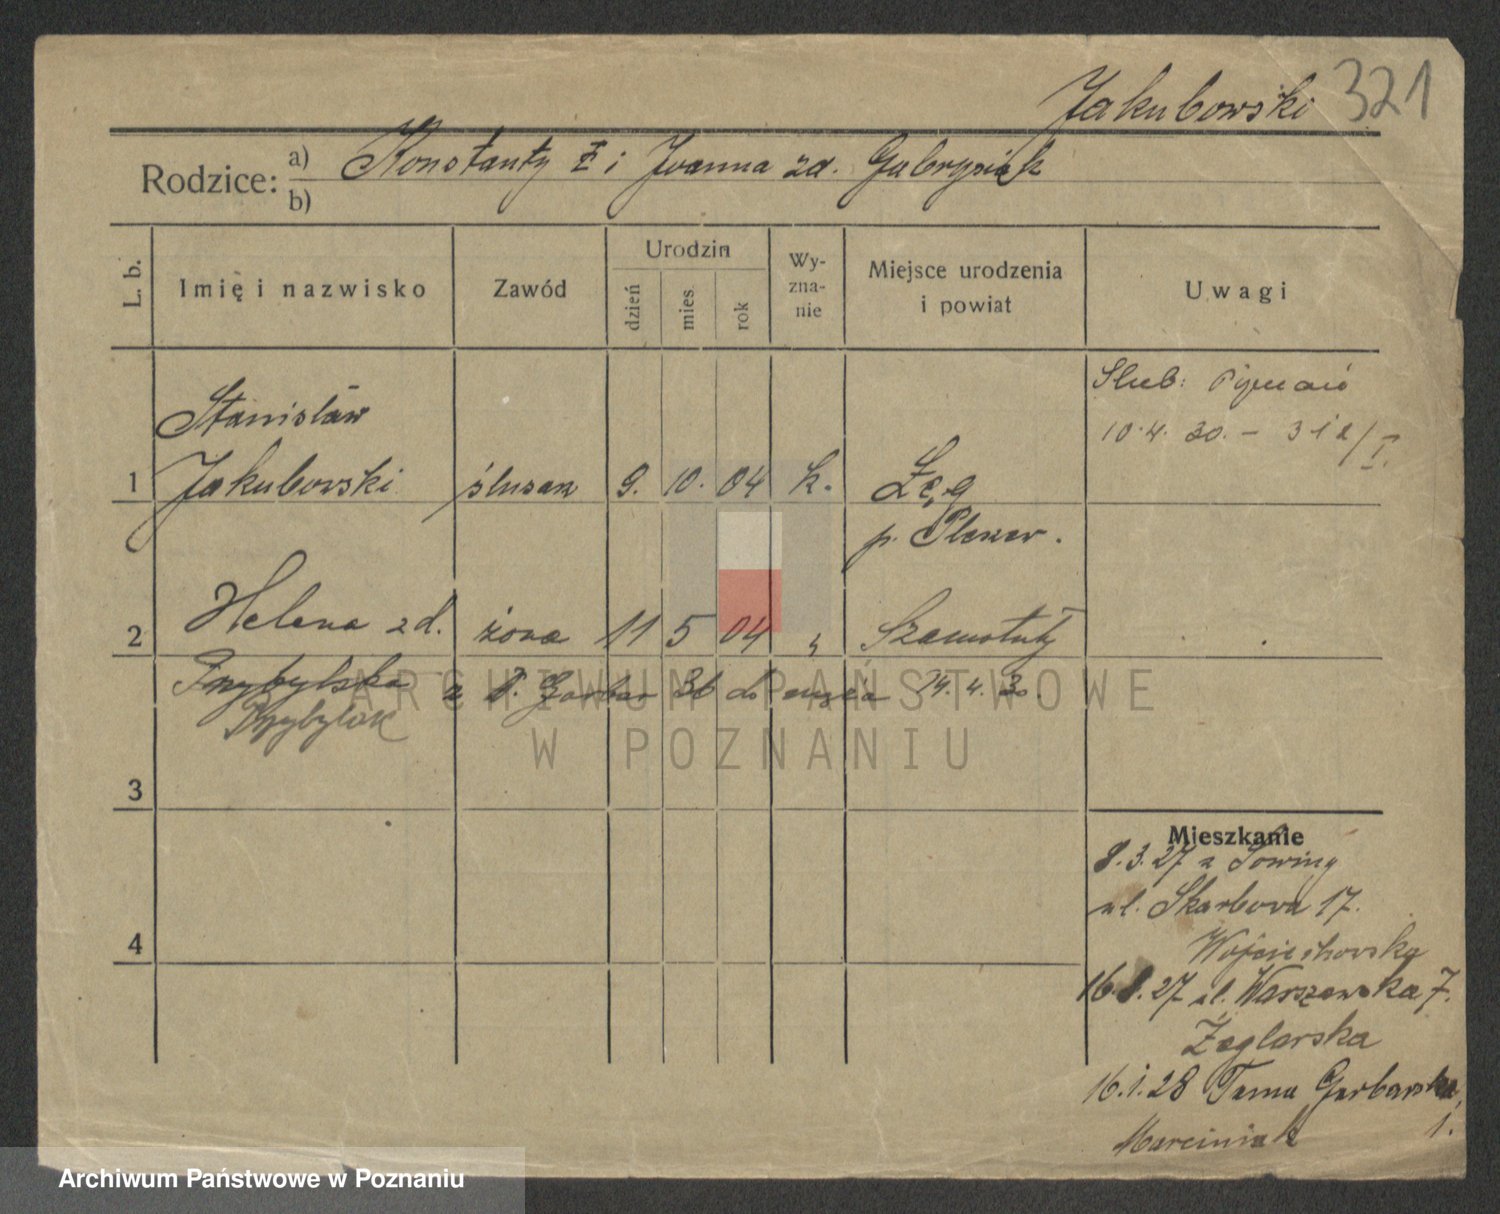 Jakubowski 321
Rodzice: a) Konstanty i Joanna zd. Gabrysiak
b)
L. b. Imię i nazwisko Zawód Urodzin dzień mies. rok Wyznanie Miejsce urodzenia i powiat Uwagi
Ślub: Poznań
10.4.30. – 312/I.
Stanisław
1 Jakubowski ślusarz 9. 10. 04 k. Łęg
p. Pleszew.
2 Helena zd. żona 11 5 04 „ Szamotuły
Przybylska z Garbar 36 do męża 14.4.30.
Przybylak
3
4
Mieszkanie
8.3.27 z
ul. Skarbowa 17.
Wojciechowska
16.8.27 ul. Warszawska 7.
Żeglarska
16.1.28 Tama Garbarska
Marciniak 1.
ARCHIWUM PAŃSTWOWE
W POZNANIU
Archiwum Państwowe w Poznaniu